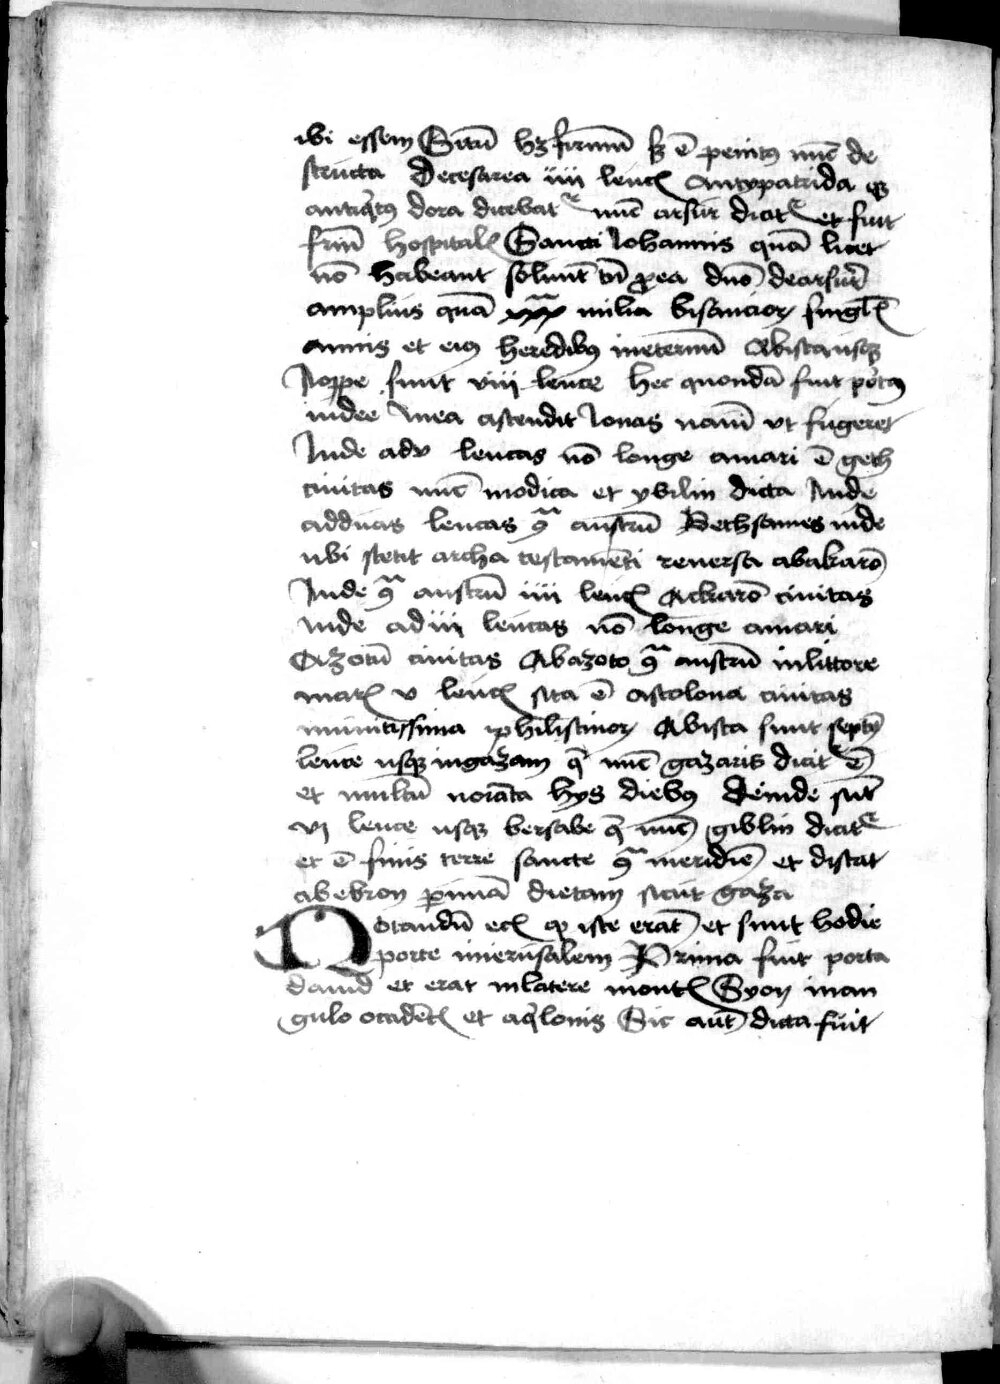 ibi essem Sitū hꝫ firmū sꝫ ē penitꝰ nūc de
structa Decesarea iiii leuc̄ Antypatrida q̄
antiq̇tꝰ dora dicebatᷣ nūc arsur dicitᷣ et fuit
frm̄ hospital̄ Sancti Johannis quā licet
nō habeant soluūt tn̄ ꝓ ea dnō de arsur
amplius quā xxxᵃ milia bisancioꝝ singl̄
annis et eiꝰ heredibꝰ ineternū Abista usqꝫ
Joppe sunt viii leuce hec quondā fuit portꝰ
iudee In ea ascendit Jonas nauī vt fugeret
Inde adv leucas nō longe amari ē geth
ciuitas nūc modica et ybilin dicta Inde
adduas leucas ꝯᵃ austrū Bethsames inde
ubi stetit archa testamēti reuersa abakarō
Inde ꝯᵃ austrū iiii leuc̄ Ackarō ciuitas
Inde adiii leucas nō longe amari
Azotū ciuitas Abazoto ꝯᵃ austrū inlittore
mar̄ v leuc̄ sita ē ascolona ciuitas
munitissima philistinoꝝ Abista sunt septē
leuce usqꝫ ingazam q̄ nūc gazaris dicitᷣ ē
et multū norata hys diebꝰ Deinde sūt
vi leuce usqꝫ bersabe q̄ nūc giblin dicitᷣ
et ē finis terre sancte ꝯᵃ meridiē et distat
abebron ꝑ unā dietam sicut gaza
Notandū ec̄ ꝙ iste erāt et sunt hodie
porte inierusalem Prima fuit porta
dauid et erat inlatere mont̄ Syon inan
gulo occidēt̄ et aq̇lonis Sic aūt dicta fuit